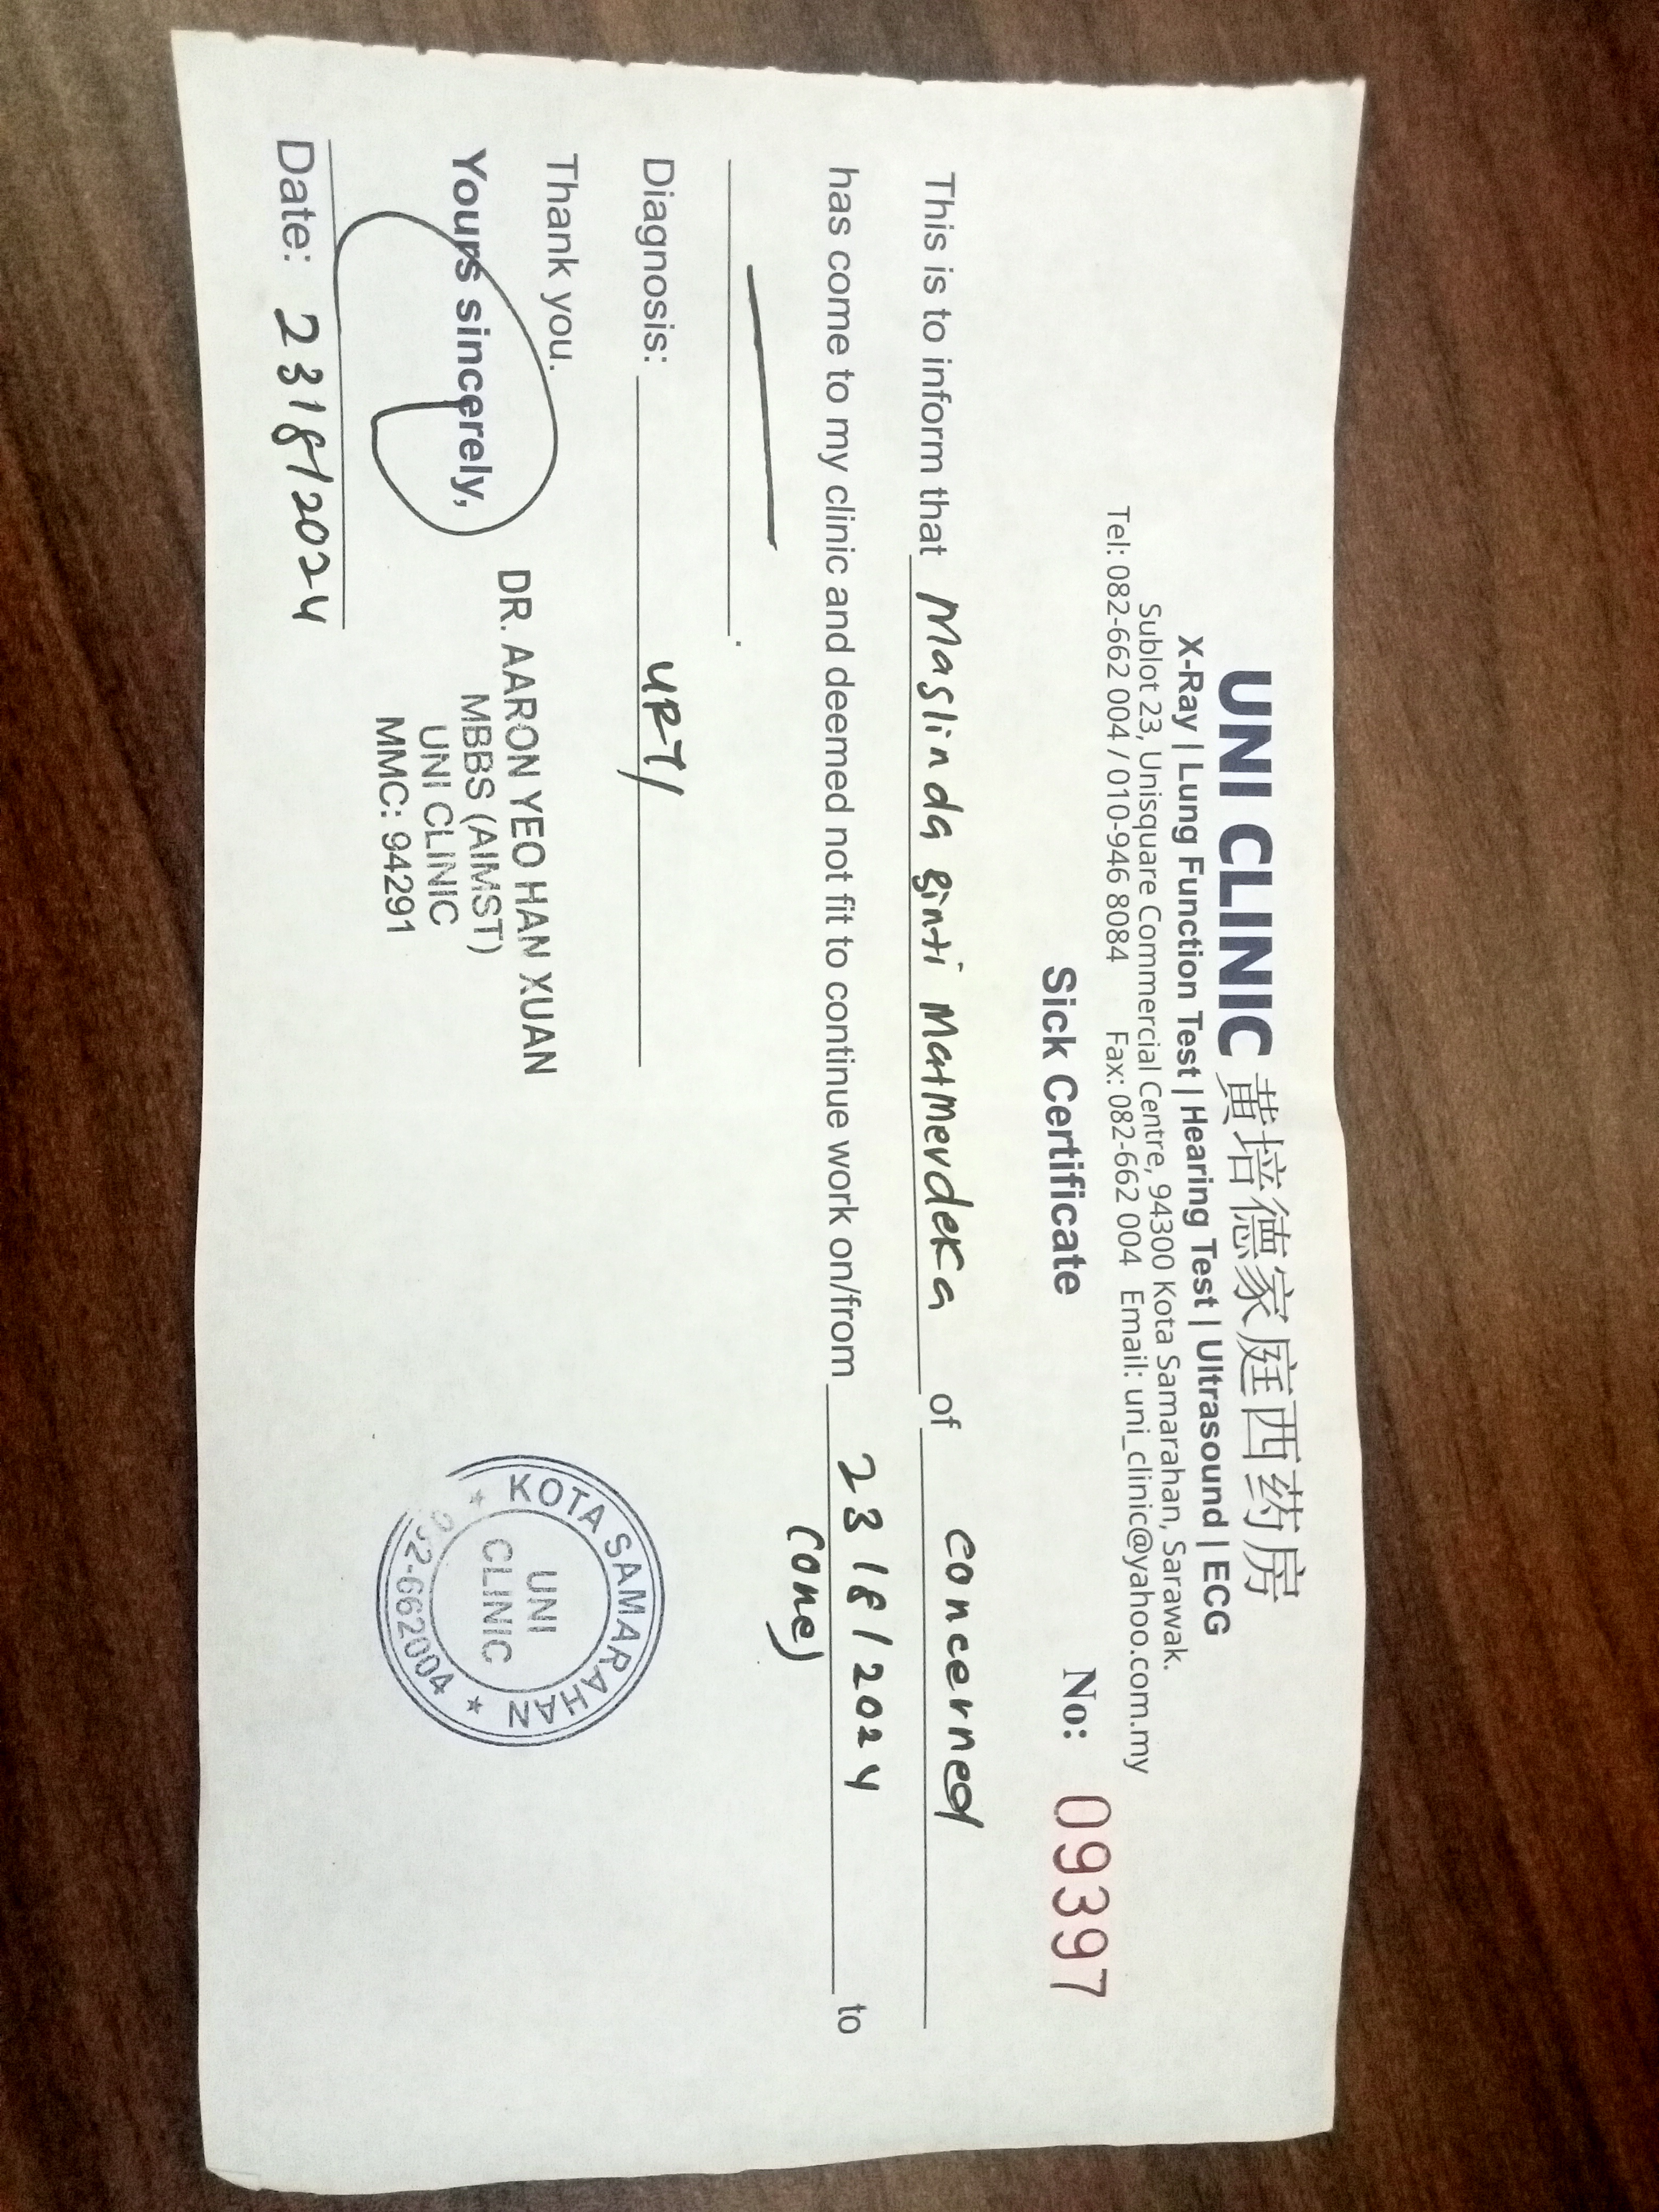 UNI CLINIC 黄培德家庭西药房
X-Ray | Lung Function Test | Hearing Test | Ultrasound | ECG
Sublot 23, Unisquare Commercial Centre, 94300 Kota Samarahan, Sarawak.
Tel: 082-662 004 / 010-946 8084 Fax: 082-662 004 Email: uni_clinic@yahoo.com.my
Sick Certificate No: 09397
This is to inform that Maslinda Binti Matmerdeka of concerned
has come to my clinic and deemed not fit to continue work on/from 23/8/2024 to
(one)
Diagnosis: URTI
Thank you.
Yours sincerely,
DR. AARON YEO HAN XUAN
MBBS (AIMST)
UNI CLINIC
MMC: 94291
Date: 23/8/2024
KOTA SAMARAHAN
UNI
CLINIC
082-662004